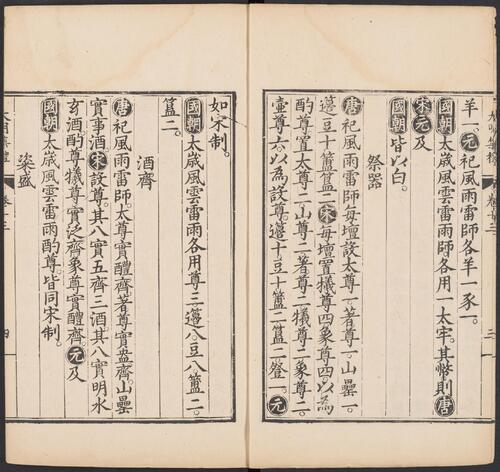 羊一。元祀風雨雷師各羊一豕一。
國朝太歲風雲雷雨師各用一太牢。其幣則唐
宋元及
國朝皆以白。
祭器
唐祀風雨雷師每壇設太尊一。著尊一。山罍一。
籩豆十簠簋二。宋每壇置犧尊四。象尊四。以為
酌尊。置太尊二山尊二著尊二犧尊二象尊二。
壷尊六。以為設尊。籩十。豆十簠二簋二登一。元
如宋制。
國朝太歲風雲雷雨各用尊三籩八豆八簠二。
簋二。
酒齊
唐祀風雨雷師。太尊實醴齊著尊實盎齊。山罍
實事酒宋設尊。其八實五齊三酒其八實明水
玄酒酌尊犧尊實泛齊象尊實醴齊元及
國朝太歲風雲雷雨酌尊。皆同宋制。
粢盛
卷十三
四